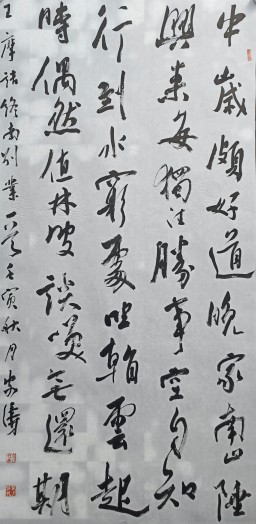 中歲頗好道晚家南山陲
興來每獨往勝事空自知
行到水窮處坐看雲起
時偶然值林叟談笑無還期
王摩詰終南別業一首壬寅秋月